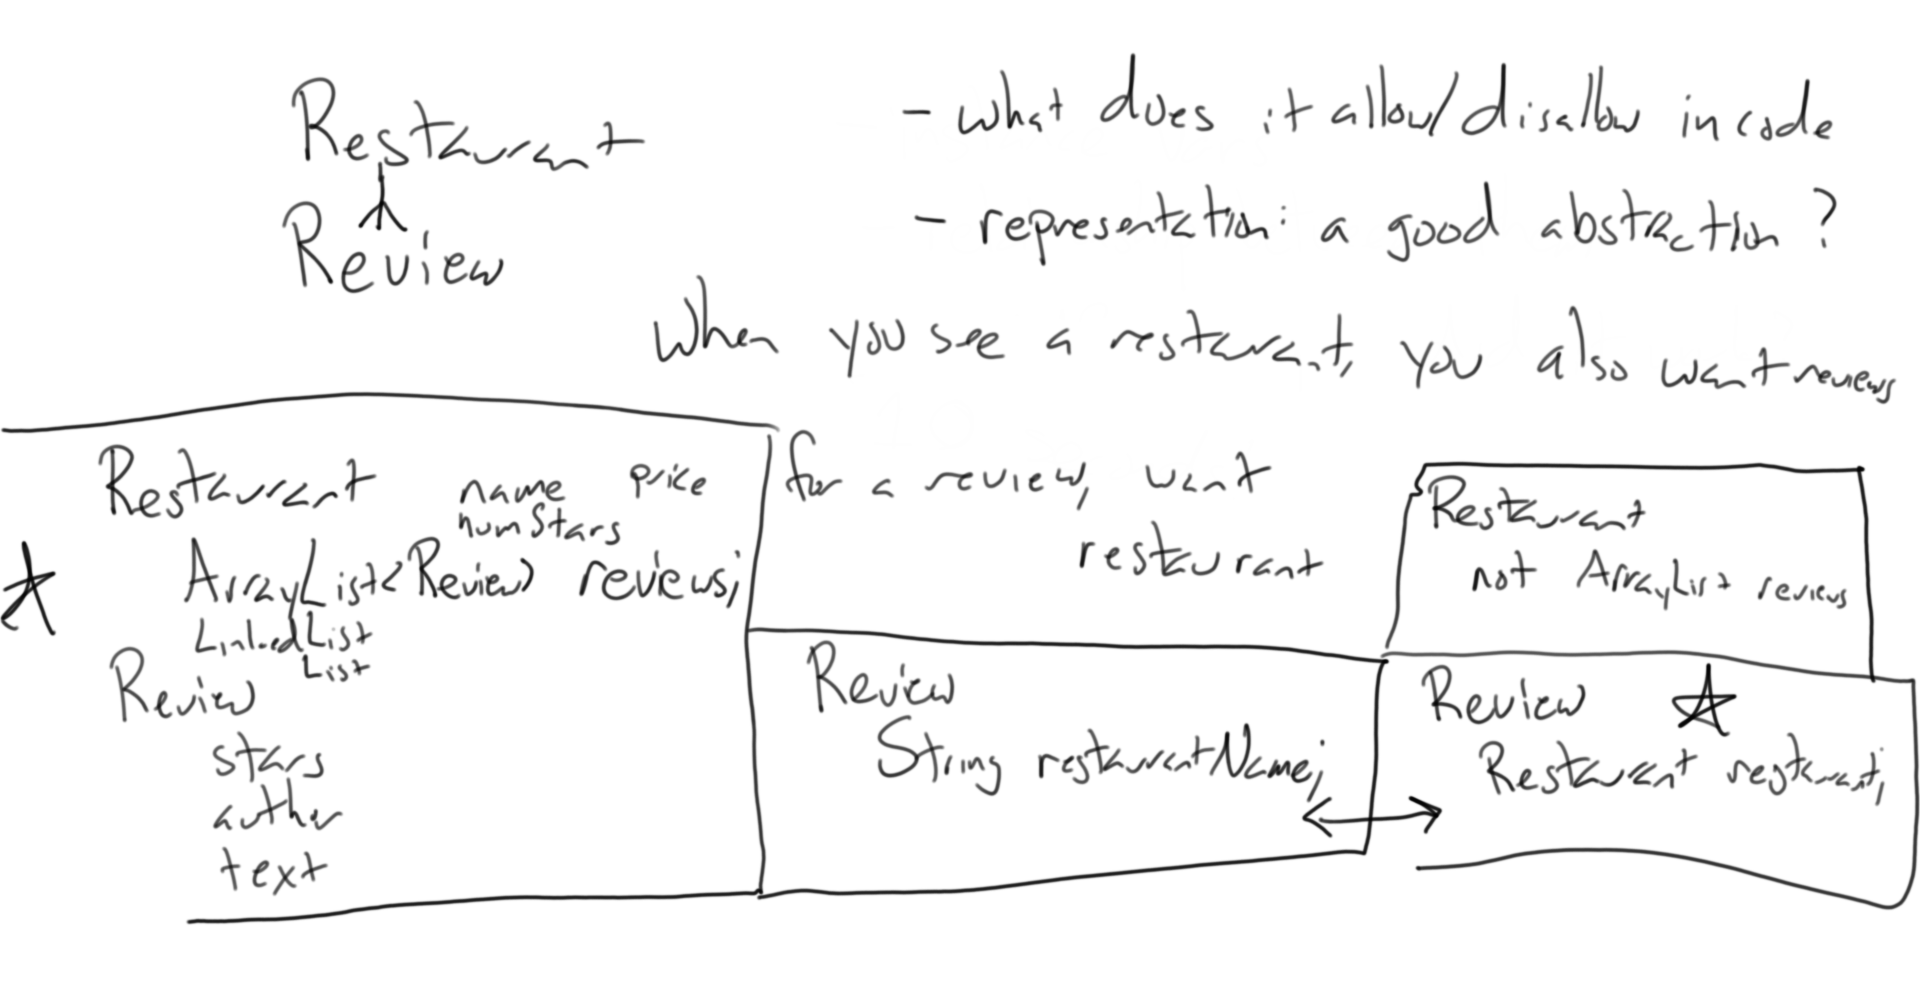 Restaurant
Review
- what does it allow/disallow in code
- representation: a good abstraction?
When you see a restaurant, you also want reviews
Restaurant name price
numStars
ArrayList<Review> reviews;
LinkedList
List
Review
stars
author
text
for a review, want
restaurant
Review
String restaurantName;
Restaurant
not ArrayList reviews
Review
Restaurant restaurant;